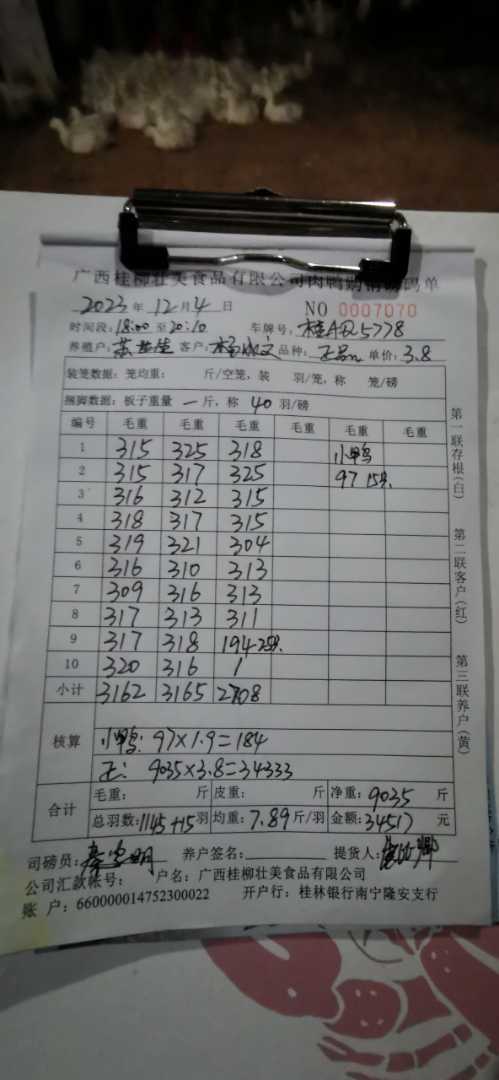 广西桂柳壮美食品有限公司肉鸭购销磅码单
2023年12月4日 NO 0007070
时间段:18:00至20:10 车牌号:桂A
养殖户: 客户:杨 文 品种: 单价:3.8
装笼数据:笼均重: 斤/空笼,装 羽/笼,称 笼/磅
捆脚数据:板子重量 一 斤,称 40 羽/磅
编号 毛重 毛重 毛重 毛重 毛重 毛重
1 315 325 318 小鸭
2 315 317 325 97 15只
3 316 312 315
4 318 317 315
5 319 321 304
6 316 310 313
7 309 316 313
8 317 313 311
9 317 318 194 25只
10 320 316 /
小计 3162 3165 2708
核算 小鸭:97×1.9=184
正:9035×3.8=34333
合计 毛重: 斤 皮重: 斤 净重:9035 斤
总羽数:1145+15羽 均重:7.89斤/羽 金额:34517 元
司磅员: 养户签名: 提货人:
公司汇款帐号: 户名:广西桂柳壮美食品有限公司
账 户:660000014752300022 开户行:桂林银行南宁隆安支行
第一联存根(白)
第二联客户(红)
第三联养户(黄)